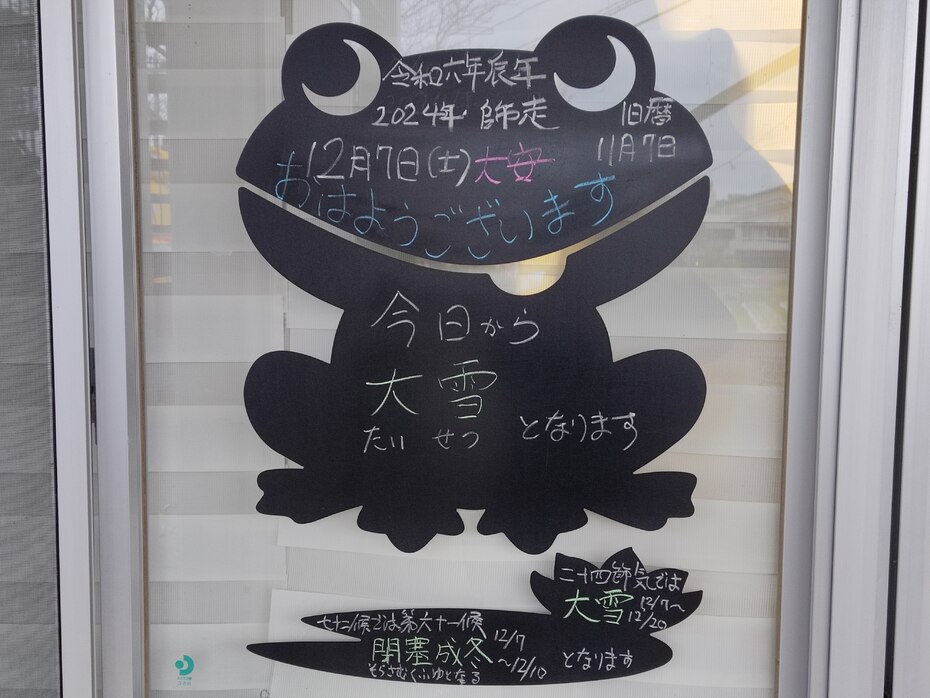 令和六年辰年
2024年 師走
旧暦
11月7日
12月7日(土)大安
おはようございます
今日から
大雪
たいせつ となります
二十四節気では
大雪 12/7〜
12/20
七十二候では第六十一候
閉塞成冬 12/7
〜12/10
そらさむくふゆとなる
となります